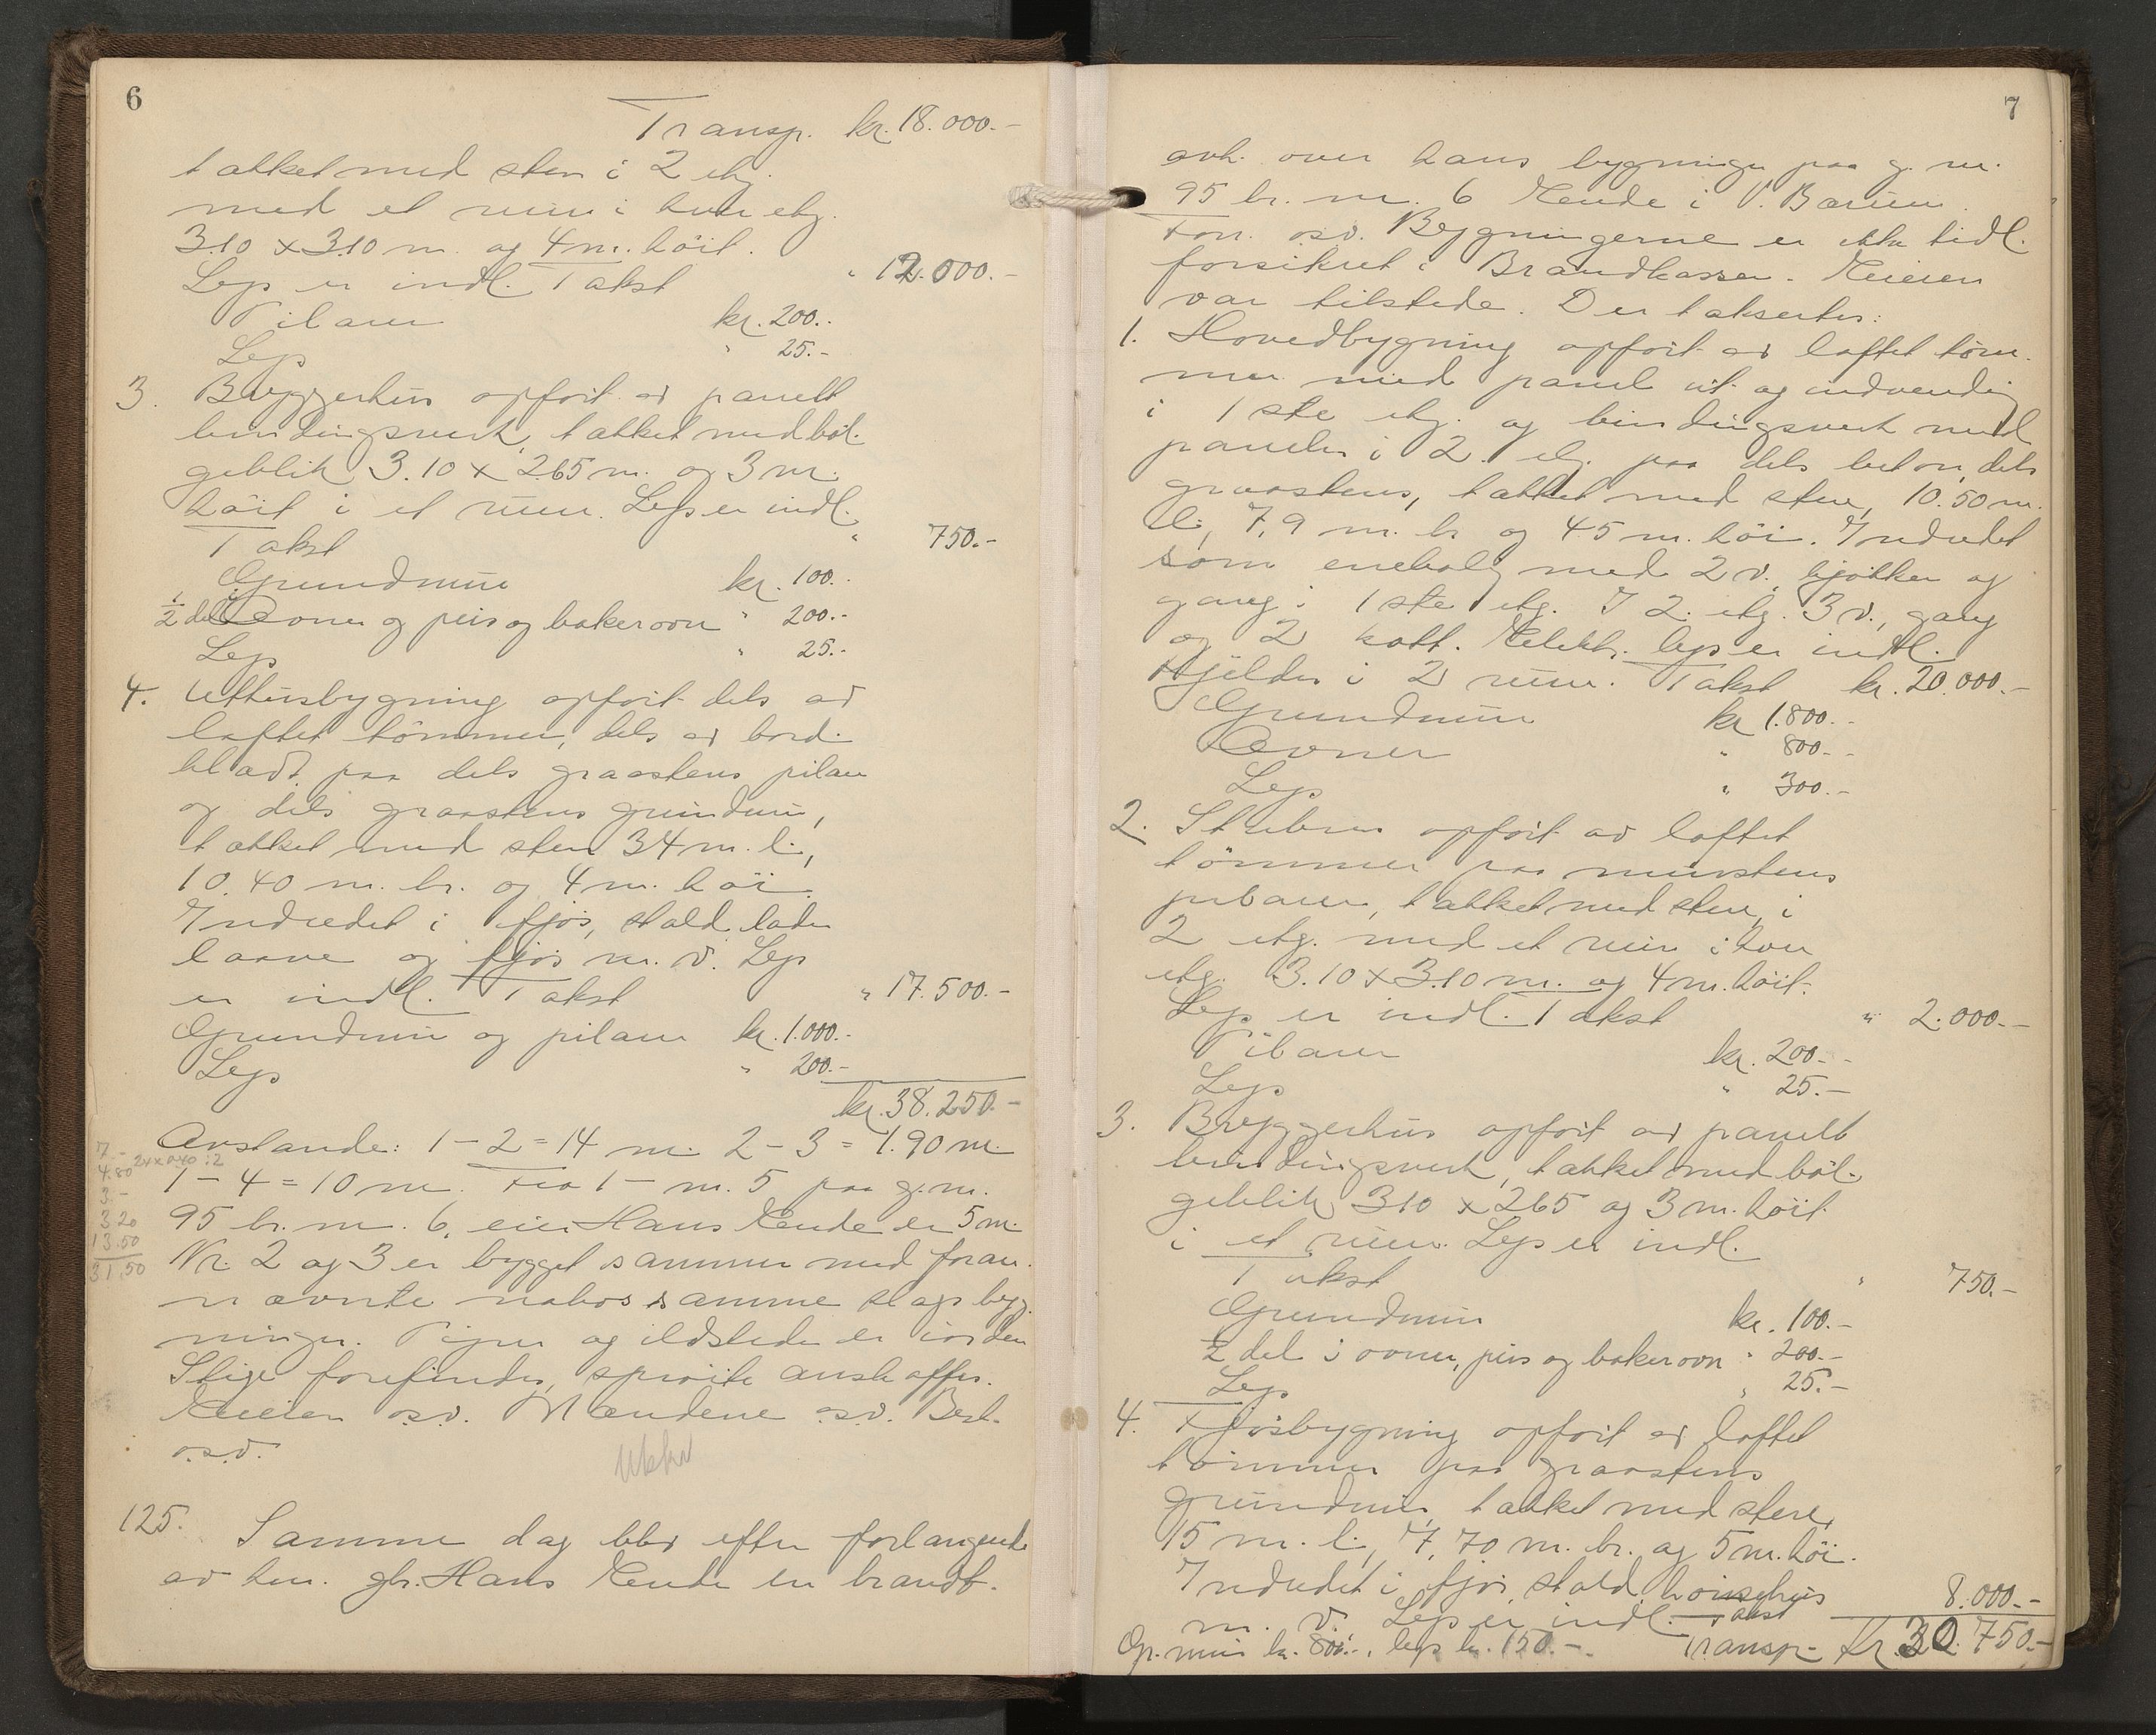 6
Transp. kr. 18.000.-
tækket med sten i 2 etg.
med et rum i hver etg.
3.10 x 3.10 m. og 4 m. höit.
Legs er indl. Takst " 12.000.-
Pilarer kr. 200.-
Legs " 25.-
3. Bryggerhus opfört av panelt
bindingsverk, tækket med böl-
geblik 3.10 x 2.65 m. og 3 m.
höit i et rum. Legs er indl.
Takst " 750.-
Grundmur kr. 100.-
1/2 del Ovner og peis og bakerovn " 200.-
Legs " 25.-
4. Uthusbygning opfört dels av
laftet tömmer, dels av bord-
klædt paa dels graastens pilarer
og dels graastens grundmur,
tækket med sten 34 m. l.,
10.40 m. br. og 4 m. höi.
Indredet i fjös, stald, lade
laave og fjös m. v. Legs
er indl. Takst " 17.500.-
Grundmur og pilarer kr. 1.000.-
Legs " 200.-
kr. 38.250.-
Avstande: 1 - 2 = 14 m. 2 - 3 = 1.90 m.
1 - 4 = 10 m. Fra 1 - nr. 5 paa g. nr.
95 br. nr. 6, eier Hans Eende er 5 m.
Nr. 2 og 3 er bygget sammen med foran-
nævnte nabos samme slags byg-
ninger. Piper og ildsteder er i orden
Stige forefindes, spröite anskaffes.
Eieren o.s.v. Mændene o.s.v. Best.
o.s.v.
7.-
4.80
3.-
3.20
13.50
31.50
125. Samme dag blev efter forlangende
av hr. gbr. Hans Eende en brandt.
7
avh. over hans bygninger paa g. nr.
95 br. nr. 6 Eende i V. Bærum.
Forr. o.s.v. Bygningerne er ikke tidl.
forsikret i Brandkassen. Eieren
var tilstede. Der taksertes:
1. Hovedbygning opfört av laftet töm-
mer med panel ut- og indvendig
i 1ste etg. og bindingsverk med
paneler i 2. etg. paa dels beton, dels
graastens, tækket med sten, 10.50 m.
l., 7,9 m. br og 4.5 m. höi. Indredet
som enebolig med 2 v., kjökken og
gang i 1ste etg. I 2. etg. 3 v., gang
og 2 kott. Elektr. legs er indl.
Kjelder i 2 rum. Takst kr. 20.000.-
Grundmur kr 1.800.-
Ovner " 800.-
Legs " 300.-
2. Stabur opfört av laftet
tömmer paa murstens
pilarer, tækket med sten, i
2 etg. med et rum i hver
etg. 3.10 x 3.10 m. og 4 m. höit.
Legs er indl. Takst " 2.000.-
Pilarer kr. 200.-
Legs " 25.-
3. Bryggerhus opfört av panelt
bindingsverk, tækket med böl-
geblik 3.10 x 2.65 og 3 m. höit
i et rum. Legs er indl.
Takst " 750.-
Grundmur kr. 100.-
1/2 del i ovner, peis og bakerovn " 200.-
Legs " 25.-
4. Fjösbygning opfört av laftet
tömmer paa graastens
grundmur, tækket med sten,
15 m. l., 7,70 m. br. og 5 m. höi.
Indredet i fjös, stald, hönsehus
m. v. Legs er indl. Takst 8.000.-
Gr. mur kr. 800.-, legs kr. 150.-. Transp. Kr. 30.750.-